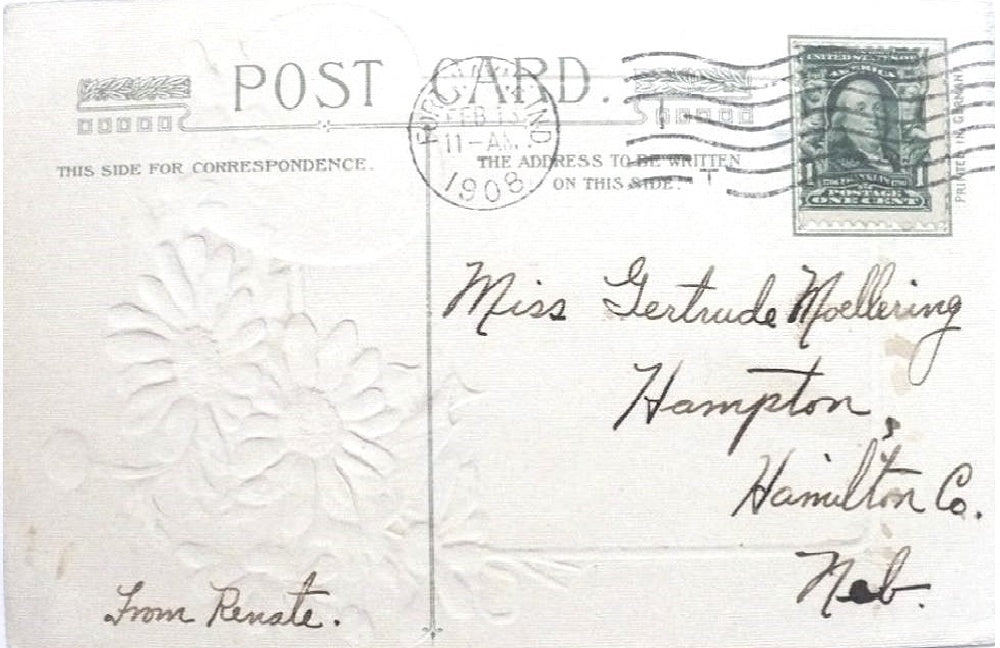 POST CARD.
THIS SIDE FOR CORRESPONDENCE.
THE ADDRESS TO BE WRITTEN
ON THIS SIDE.
FORT WAYNE, IND
FEB 13
11-AM
1908
UNITED STATES OF
AMERICA
1 FRANKLIN 1
POSTAGE
ONE CENT
PRINTED IN GERMANY
Miss Gertrude Moellering
Hampton,
Hamilton Co.
Neb.
From Renate.